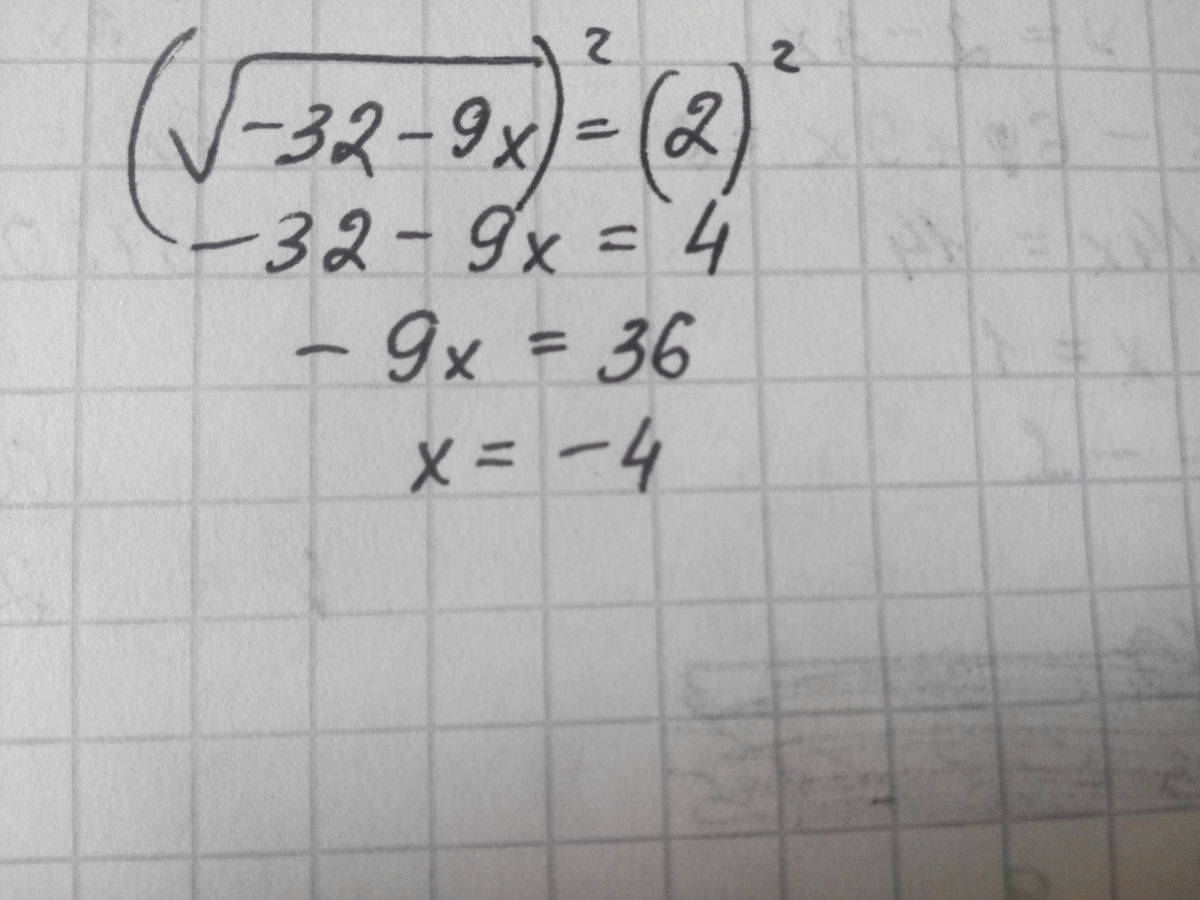 (√-32-9x)² = (2)²
-32 - 9x = 4
- 9x = 36
x = -4